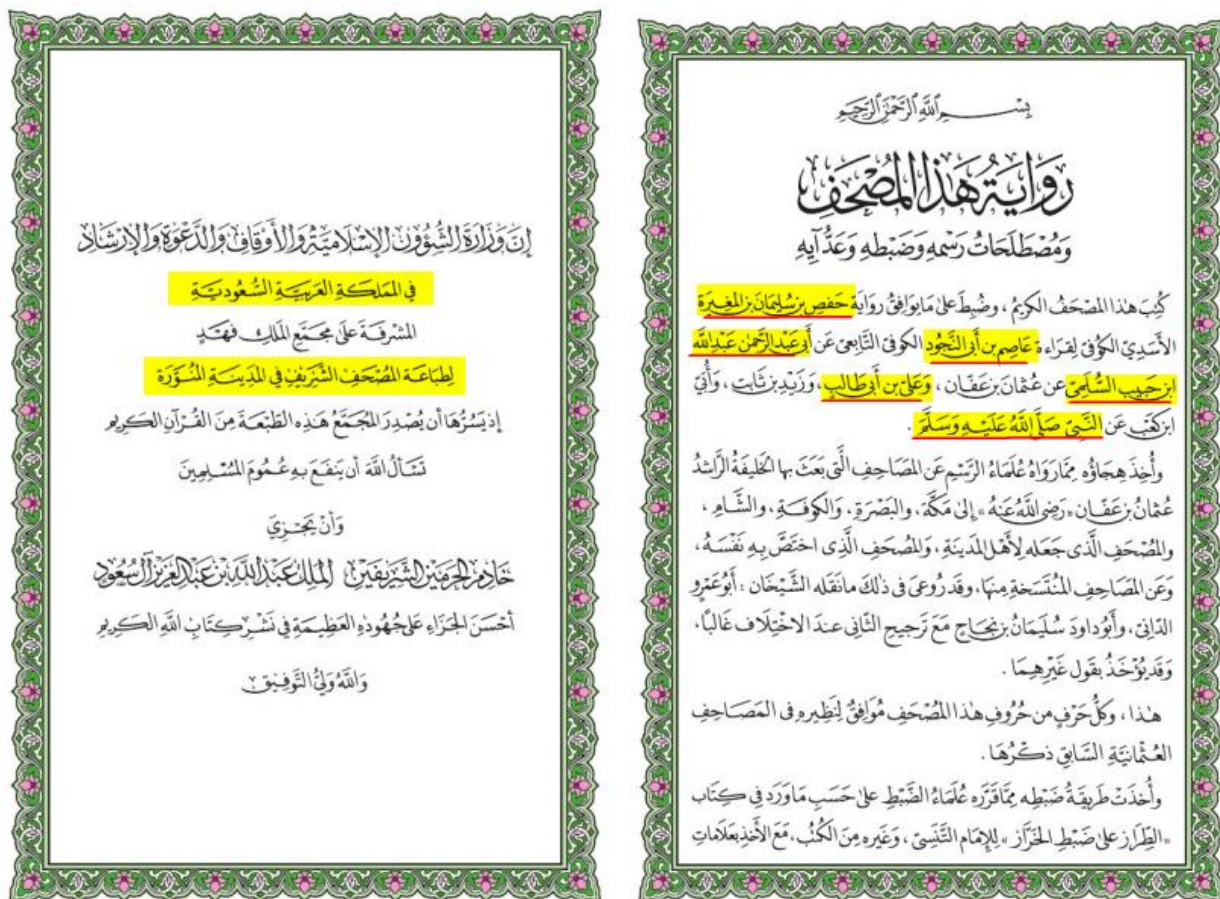 بِسْمِ ٱللَّهِ ٱلرَّحْمَٰنِ ٱلرَّحِيمِ
رِوَايَةُ هَذَا المُصْحَفِ
وَمُصْطَلَحَاتُ رَسْمِهِ وَضَبْطِهِ وَعَدِّ آيِهِ
كُتِبَ هٰذَا المُصْحَفُ الكَرِيمُ ، وَضُبِطَ عَلىٰ مَا يُوَافِقُ رِوَايَةَ حَفْصِ بْنِ سُلَيْمَانَ بْنِ المُغِيرَةِ
الأَسَدِيِّ الكُوفِيِّ لِقِرَاءَةِ عَاصِمِ بْنِ أَبِي النَّجُودِ الكُوفِيِّ التَّابِعِيِّ عَنْ أَبِي عَبْدِ الرَّحْمٰنِ عَبْدِ اللَّهِ
ابْنِ حَبِيبٍ السُّلَمِيِّ عَنْ عُثْمَانَ بْنِ عَفَّانَ ، وَعَلِيِّ بْنِ أَبِي طَالِبٍ ، وَزَيْدِ بْنِ ثَابِتٍ ، وَأُبَيِّ
ابْنِ كَعْبٍ عَنِ النَّبِيِّ صَلَّى اللَّهُ عَلَيْهِ وَسَلَّمَ .
وَأُخِذَ هِجَاؤُهُ مِمَّا رَوَاهُ عُلَمَاءُ الرَّسْمِ عَنِ المَصَاحِفِ الَّتِي بَعَثَ بِهَا الخَلِيفَةُ الرَّاشِدُ
عُثْمَانُ بْنُ عَفَّانَ «رَضِيَ اللَّهُ عَنْهُ» إِلىٰ مَكَّةَ ، وَالبَصْرَةِ ، وَالكُوفَةِ ، وَالشَّامِ ،
وَالمُصْحَفِ الَّذِي جَعَلَهُ لِأَهْلِ المَدِينَةِ ، وَالمُصْحَفِ الَّذِي اخْتَصَّ بِهِ نَفْسَهُ ،
وَعَنِ المَصَاحِفِ المُنْتَسَخَةِ مِنْهَا ، وَقَدْ رُوعِيَ فِي ذٰلِكَ مَا نَقَلَهُ الشَّيْخَانِ : أَبُو عَمْرٍو
الدَّانِيُّ ، وَأَبُو دَاوُدَ سُلَيْمَانُ بْنُ نَجَاحٍ مَعَ تَرْجِيحِ الثَّانِي عِنْدَ الاخْتِلَافِ غَالِبًا ،
وَقَدْ يُؤْخَذُ بِقَوْلِ غَيْرِهِمَا .
هٰذَا ، وَكُلُّ حَرْفٍ مِنْ حُرُوفِ هٰذَا المُصْحَفِ مُوَافِقٌ لِنَظِيرِهِ فِي المَصَاحِفِ
العُثْمَانِيَّةِ السَّابِقِ ذِكْرُهَا .
وَأُخِذَتْ طَرِيقَةُ ضَبْطِهِ مِمَّا قَرَّرَهُ عُلَمَاءُ الضَّبْطِ عَلىٰ حَسَبِ مَا وَرَدَ فِي كِتَابِ
«الطِّرَازِ عَلىٰ ضَبْطِ الخَرَّازِ» لِلإِمَامِ التَّنَسِيِّ ، وَغَيْرِهِ مِنَ الكُتُبِ ، مَعَ الأَخْذِ بِعَلَامَاتِ
إِنَّ وَزَارَةَ الشُّؤُونِ الإِسْلَامِيَّةِ وَالأَوْقَافِ وَالدَّعْوَةِ وَالإِرْشَادِ
فِي المَمْلَكَةِ العَرَبِيَّةِ السُّعُودِيَّةِ
المُشْرِفَةَ عَلَى مُجَمَّعِ المَلِكِ فَهْدٍ
لِطِبَاعَةِ المُصْحَفِ الشَّرِيفِ فِي المَدِينَةِ المُنَوَّرَةِ
إِذْ يَسُرُّهَا أَنْ يُصْدِرَ المُجَمَّعُ هَذِهِ الطَّبْعَةَ مِنَ القُرْآنِ الكَرِيمِ
تَسْأَلُ اللَّهَ أَنْ يَنْفَعَ بِهِ عُمُومَ المُسْلِمِينَ
وَأَنْ يَجْزِيَ
خَادِمَ الحَرَمَيْنِ الشَّرِيفَيْنِ المَلِكَ عَبْدَ اللَّهِ بْنَ عَبْدِ العَزِيزِ آلَ سُعُودٍ
أَحْسَنَ الجَزَاءِ عَلَى جُهُودِهِ العَظِيمَةِ فِي نَشْرِ كِتَابِ اللَّهِ الكَرِيمِ
وَاللَّهُ وَلِيُّ التَّوْفِيقِ